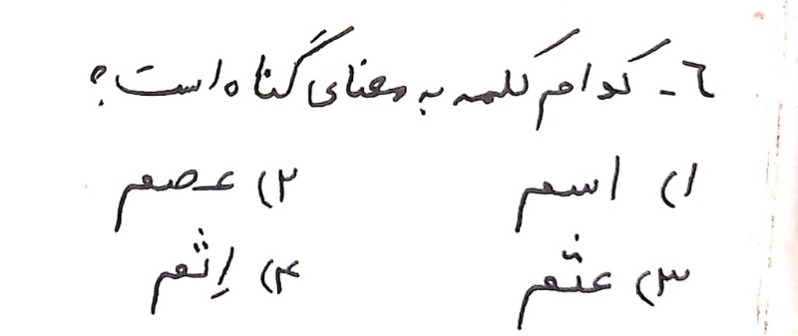 ٦- کدام کلمه به معنای گناه است؟
۱) اسم ۲) عصم
۳) عثم ۴) اِثم